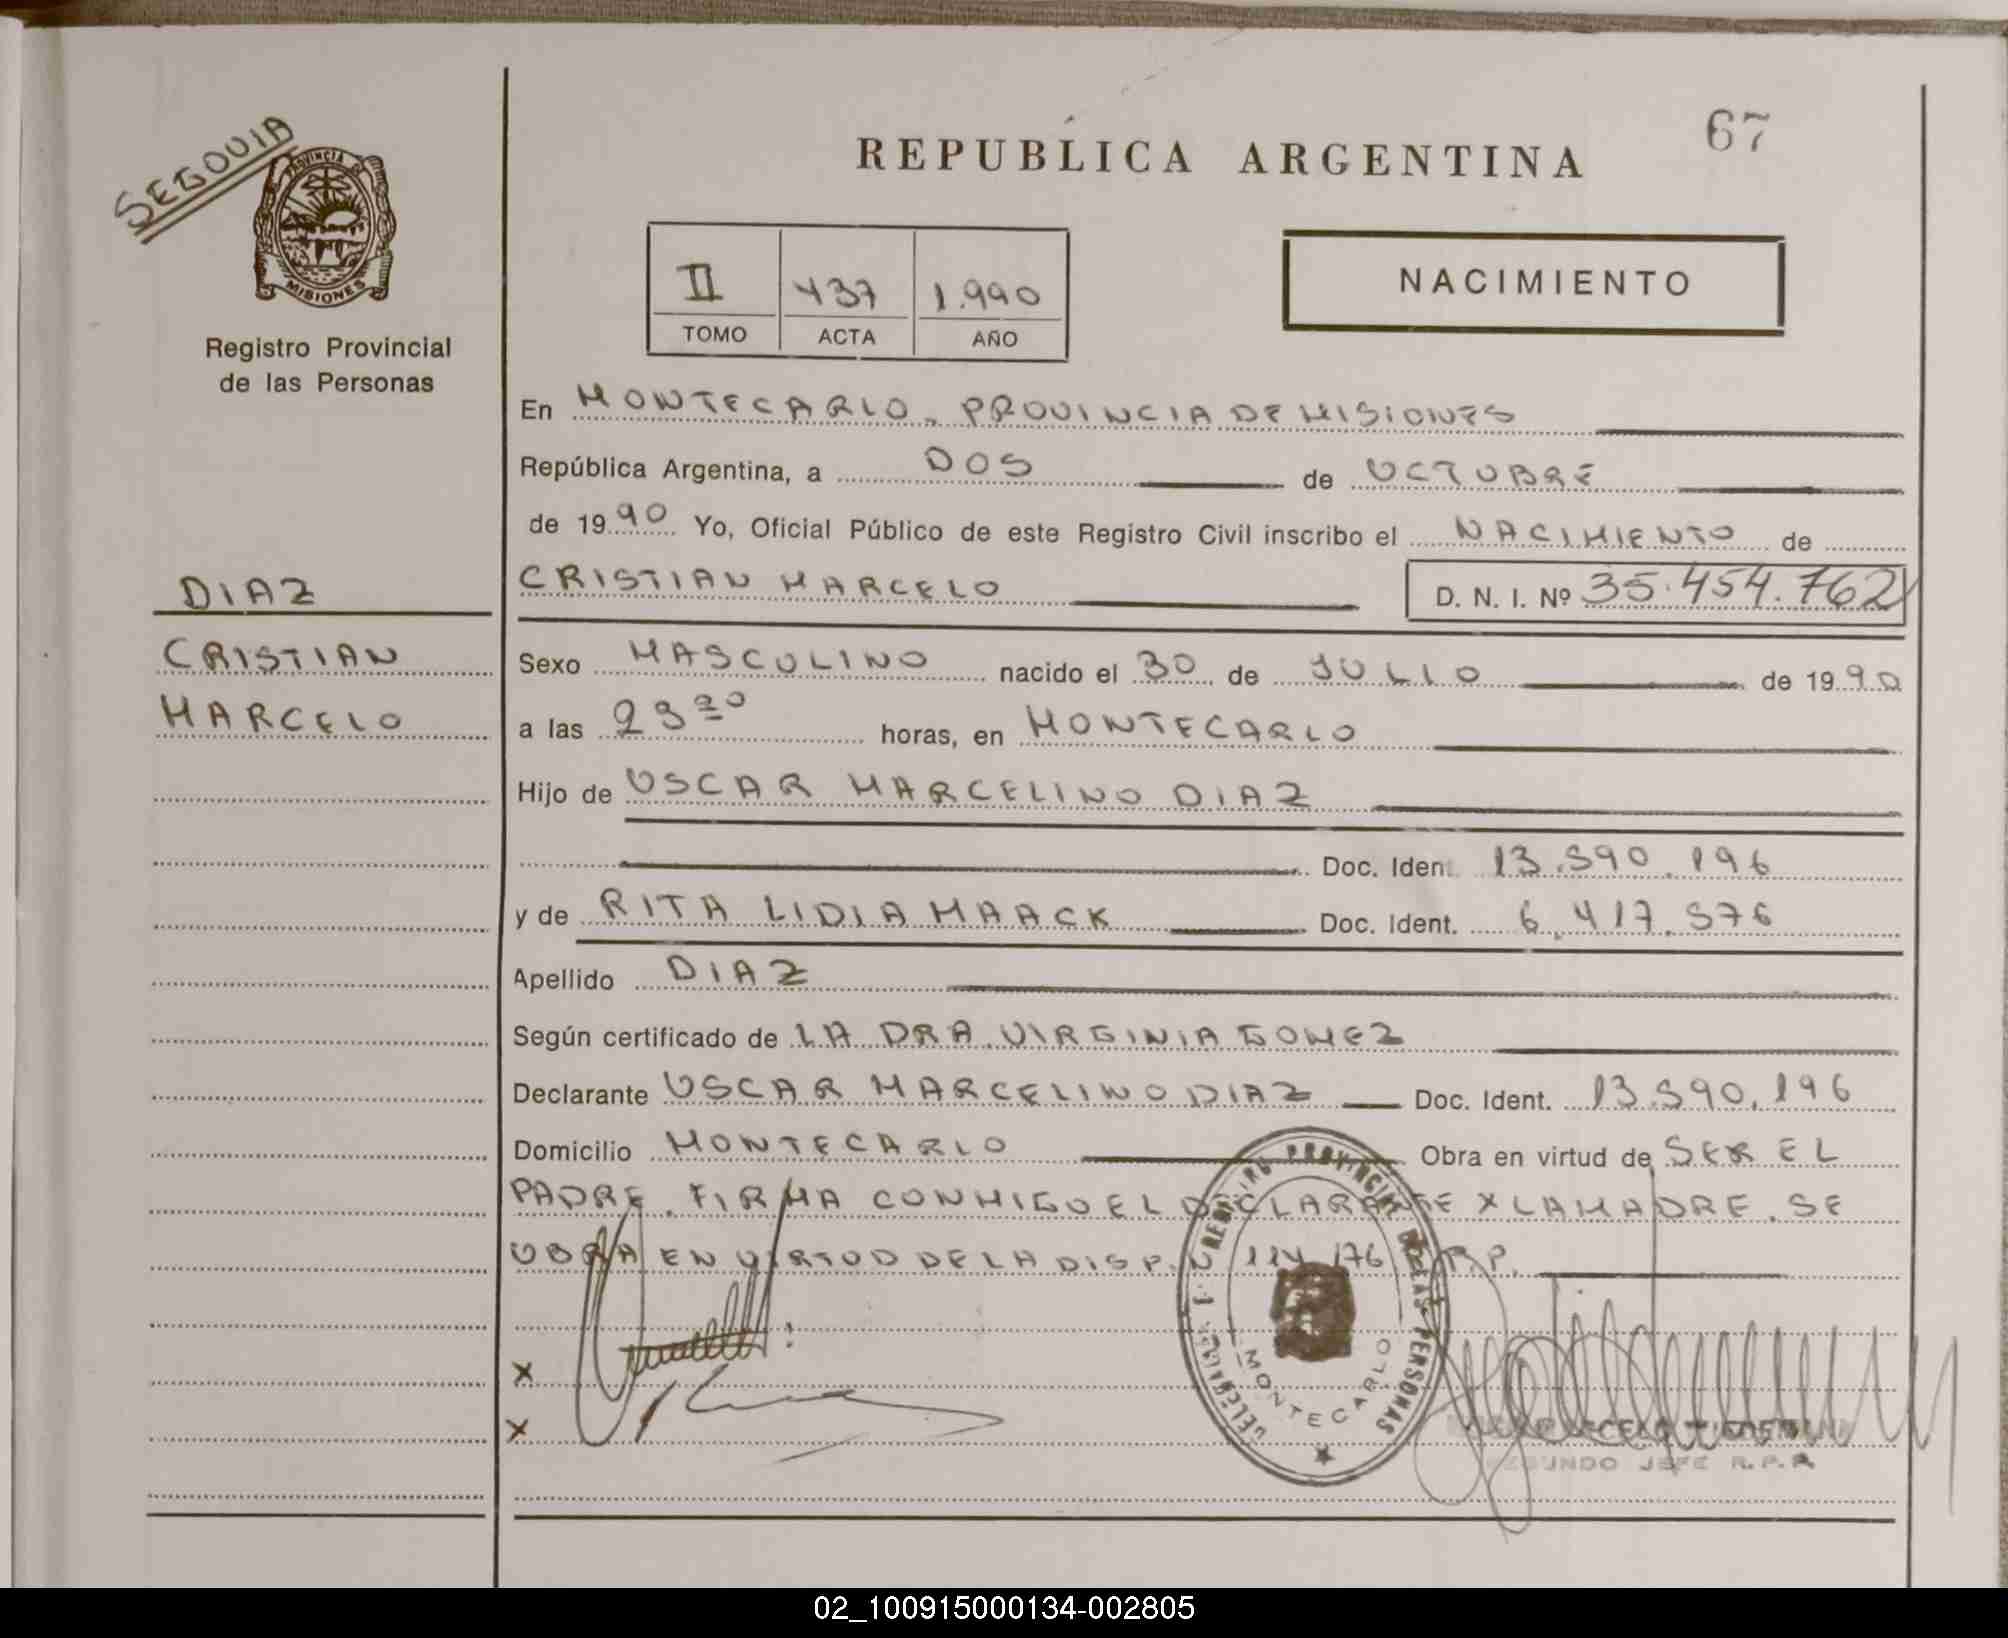 SEGOVIA
PROVINCIA
MISIONES
Registro Provincial
de las Personas
67
REPUBLICA ARGENTINA
II 437 1.990
TOMO ACTA AÑO
NACIMIENTO
En MONTECARLO, PROVINCIA DE MISIONES
República Argentina, a DOS de OCTUBRE
de 1990 Yo, Oficial Público de este Registro Civil inscribo el NACIMIENTO de
DIAZ
CRISTIAN
MARCELO
CRISTIAN MARCELO D. N. I. Nº 35.454.762
Sexo MASCULINO nacido el 30 de JULIO de 1990
a las 23 horas, en MONTECARLO
Hijo de OSCAR MARCELINO DIAZ
Doc. Ident. 13.590.196
y de RITA LIDIA MAACK Doc. Ident. 6.417.576
Apellido DIAZ
Según certificado de LA DRA. VIRGINIA GOMEZ
Declarante OSCAR MARCELINO DIAZ Doc. Ident. 13.590.196
Domicilio MONTECARLO Obra en virtud de SER EL
PADRE. FIRMA CONMIGO EL DECLARANTE X LA MADRE. SE
OBRA EN VIRTUD DE LA DISP. N 114/76 R.P.
X
X
REGISTRO PROVINCIAL DE LAS PERSONAS
MONTECARLO
SEGUNDO JEFE R.P.P.
02_100915000134-002805